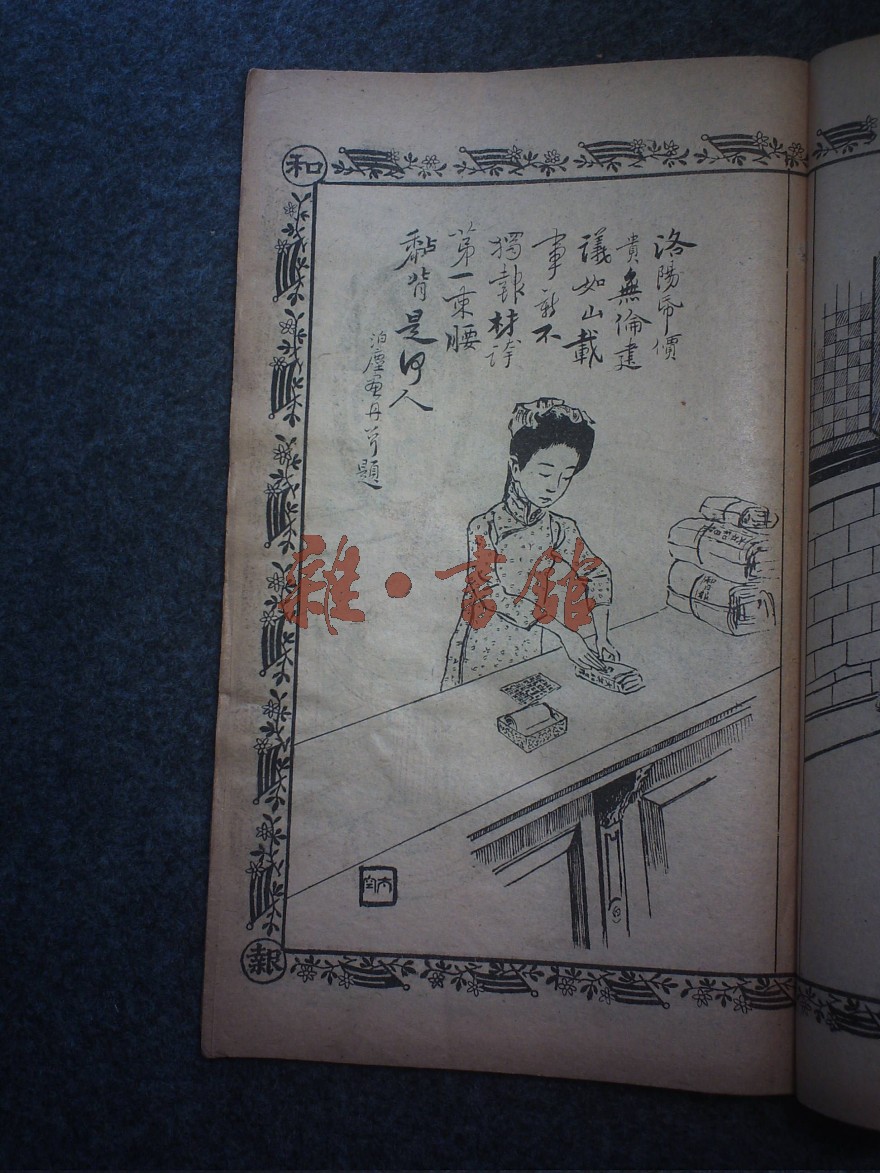 洛陽帋價
貴無倫建
議如山載
事新不
獨報材誇
第一束腰
黏背是何人
泊塵畫丹斧題
和
報
雜·書館